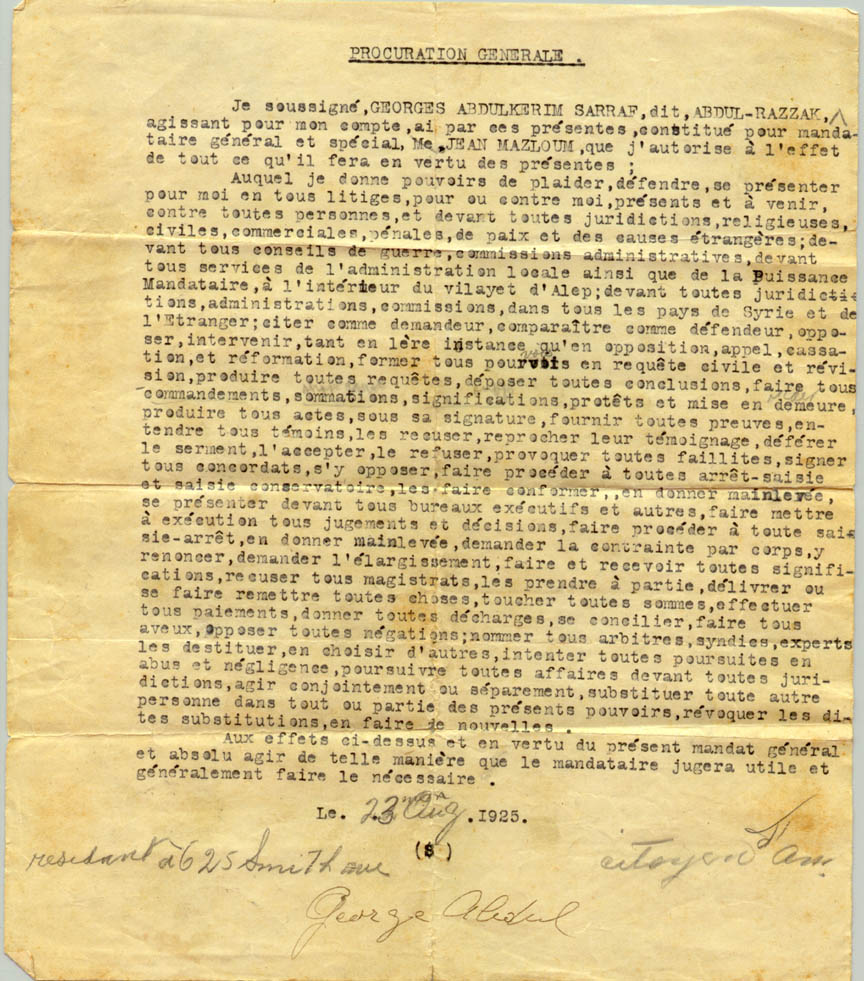 PROCURATION GENERALE .
Je soussigné,GEORGES ABDULKERIM SARRAF,dit,ABDUL-RAZZAK,
agissant pour mon compte,ai par ces présentes,constitué pour manda-
taire général et spécial,Me,JEAN MAZLOUM,que j'autorise à l'effet
de tout ce qu'il fera en vertu des présentes ;
Auquel je donne pouvoirs de plaider,défendre,se présenter
pour moi en tous litiges,pour ou contre moi,présents et à venir,
contre toutes personnes,et devant toutes juridictions,religieuses,
civiles,commerciales,pénales,de paix et des causes étrangères;de-
vant tous conseils de guerre,commissions administratives,devant
tous services de l'administration locale ainsi que de la Puissance
Mandataire,à l'intérieur du vilayet d'Alep;devant toutes juridicti-
tions,administrations,commissions,dans tous les pays de Syrie et de
l'Etranger;citer comme demandeur,comparaître comme défendeur,oppo-
ser,intervenir,tant en 1ère instance qu'en opposition,appel,cassa-
tion,et réformation,former tous pourvois en requête civile et révi-
sion,produire toutes requêtes,déposer toutes conclusions,faire tous
commandements,sommations,significations,protêts et mise en demeure,
produire tous actes,sous sa signature,fournir toutes preuves,en-
tendre tous témoins,les recuser,reprocher leur témoignage,déférer
le serment,l'accepter,le refuser,provoquer toutes faillites,signer
tous concordats,s'y opposer,faire procéder à toutes arrêt-saisie
et saisie conservatoire,les faire conformer,,en donner mainlevée,
se présenter devant tous bureaux exécutifs et autres,faire mettre
à exécution tous jugements et décisions,faire procéder à toute sai-
sie-arrêt,en donner mainlevée,demander la contrainte par corps,y
renoncer,demander l'élargissement,faire et recevoir toutes signifi-
cations,recuser tous magistrats,les prendre à partie,délivrer ou
se faire remettre toutes choses,toucher toutes sommes,effectuer
tous paiements,donner toutes décharges,se concilier,faire tous
aveux,opposer toutes négations;nommer tous arbitres,syndics,experts
les destituer,en choisir d'autres,intenter toutes poursuites en
abus et négligence,poursuivre toutes affaires devant toutes juri-
dictions,agir conjointement ou séparement,substituer toute autre
personne dans tout ou partie des présents pouvoirs,révoquer les di-
tes substitutions,en faire de nouvelles .
Aux effets ci-dessus et en vertu du présent mandat général
et absolu agir de telle manière que le mandataire jugera utile et
généralement faire le nécessaire .
Le. 23 Aug .1925.
(S)
residant à 625 Smith ave
citoyen Am.
George Abdul